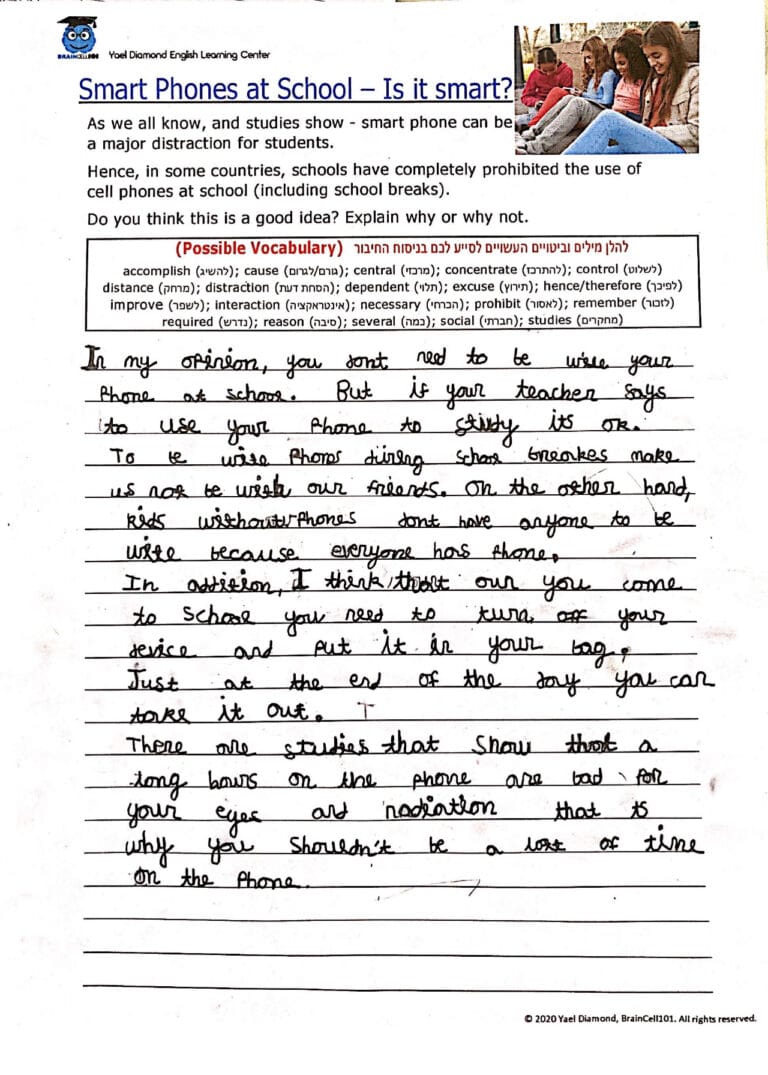 BRAINCELL101 Yael Diamond English Learning Center
Smart Phones at School – Is it smart?
As we all know, and studies show - smart phone can be
a major distraction for students.
Hence, in some countries, schools have completely prohibited the use of
cell phones at school (including school breaks).
Do you think this is a good idea? Explain why or why not.
(Possible Vocabulary) להלן מילים וביטויים העשויים לסייע לכם בניסוח החיבור
accomplish (להשיג); cause (גורם/לגרום); central (מרכזי); concentrate (להתרכז); control (לשלוט)
distance (מרחק); distraction (הסחת דעת); dependent (תלוי); excuse (תירוץ); hence/therefore (לפיכך)
improve (לשפר); interaction (אינטראקציה); necessary (הכרחי); prohibit (לאסור); remember (לזכור)
required (נדרש); reason (סיבה); several (כמה); social (חברתי); studies (מחקרים)
In my opinion, you dont need to be wite your
Phone at school. But if your teacher says
to use your Phone to study its ok.
To be wite Phones during school breakes make
us not be with our friends. On the other hand,
kids without Phones dont have anyone to be
wite because everyone has Phone.
In addition, I think that our you come
to School you need to turn off your
device and put it in your bag.
Just at the end of the day you can
take it out.
There are studies that show that a
long hours on the phone are bad for
your eyes and radiation that is
why you shouldn't be a lot of time
on the Phone.
© 2020 Yael Diamond, BrainCell101. All rights reserved.